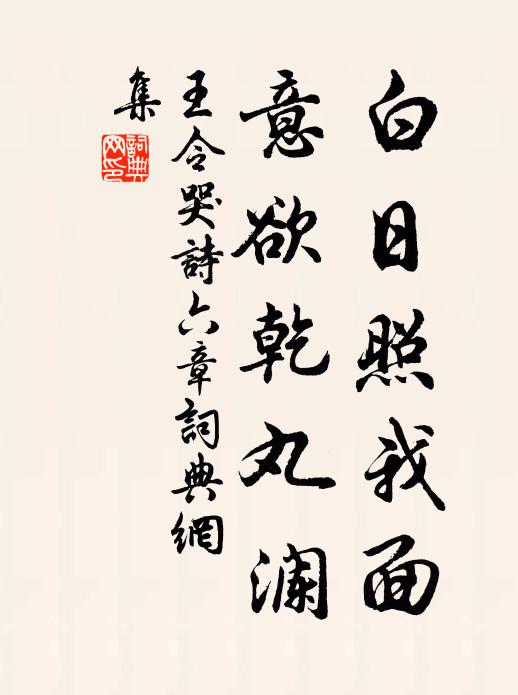 白日照我面
意欲乾丸澜
王令哭詩六章詞典網
集
詞典
网印